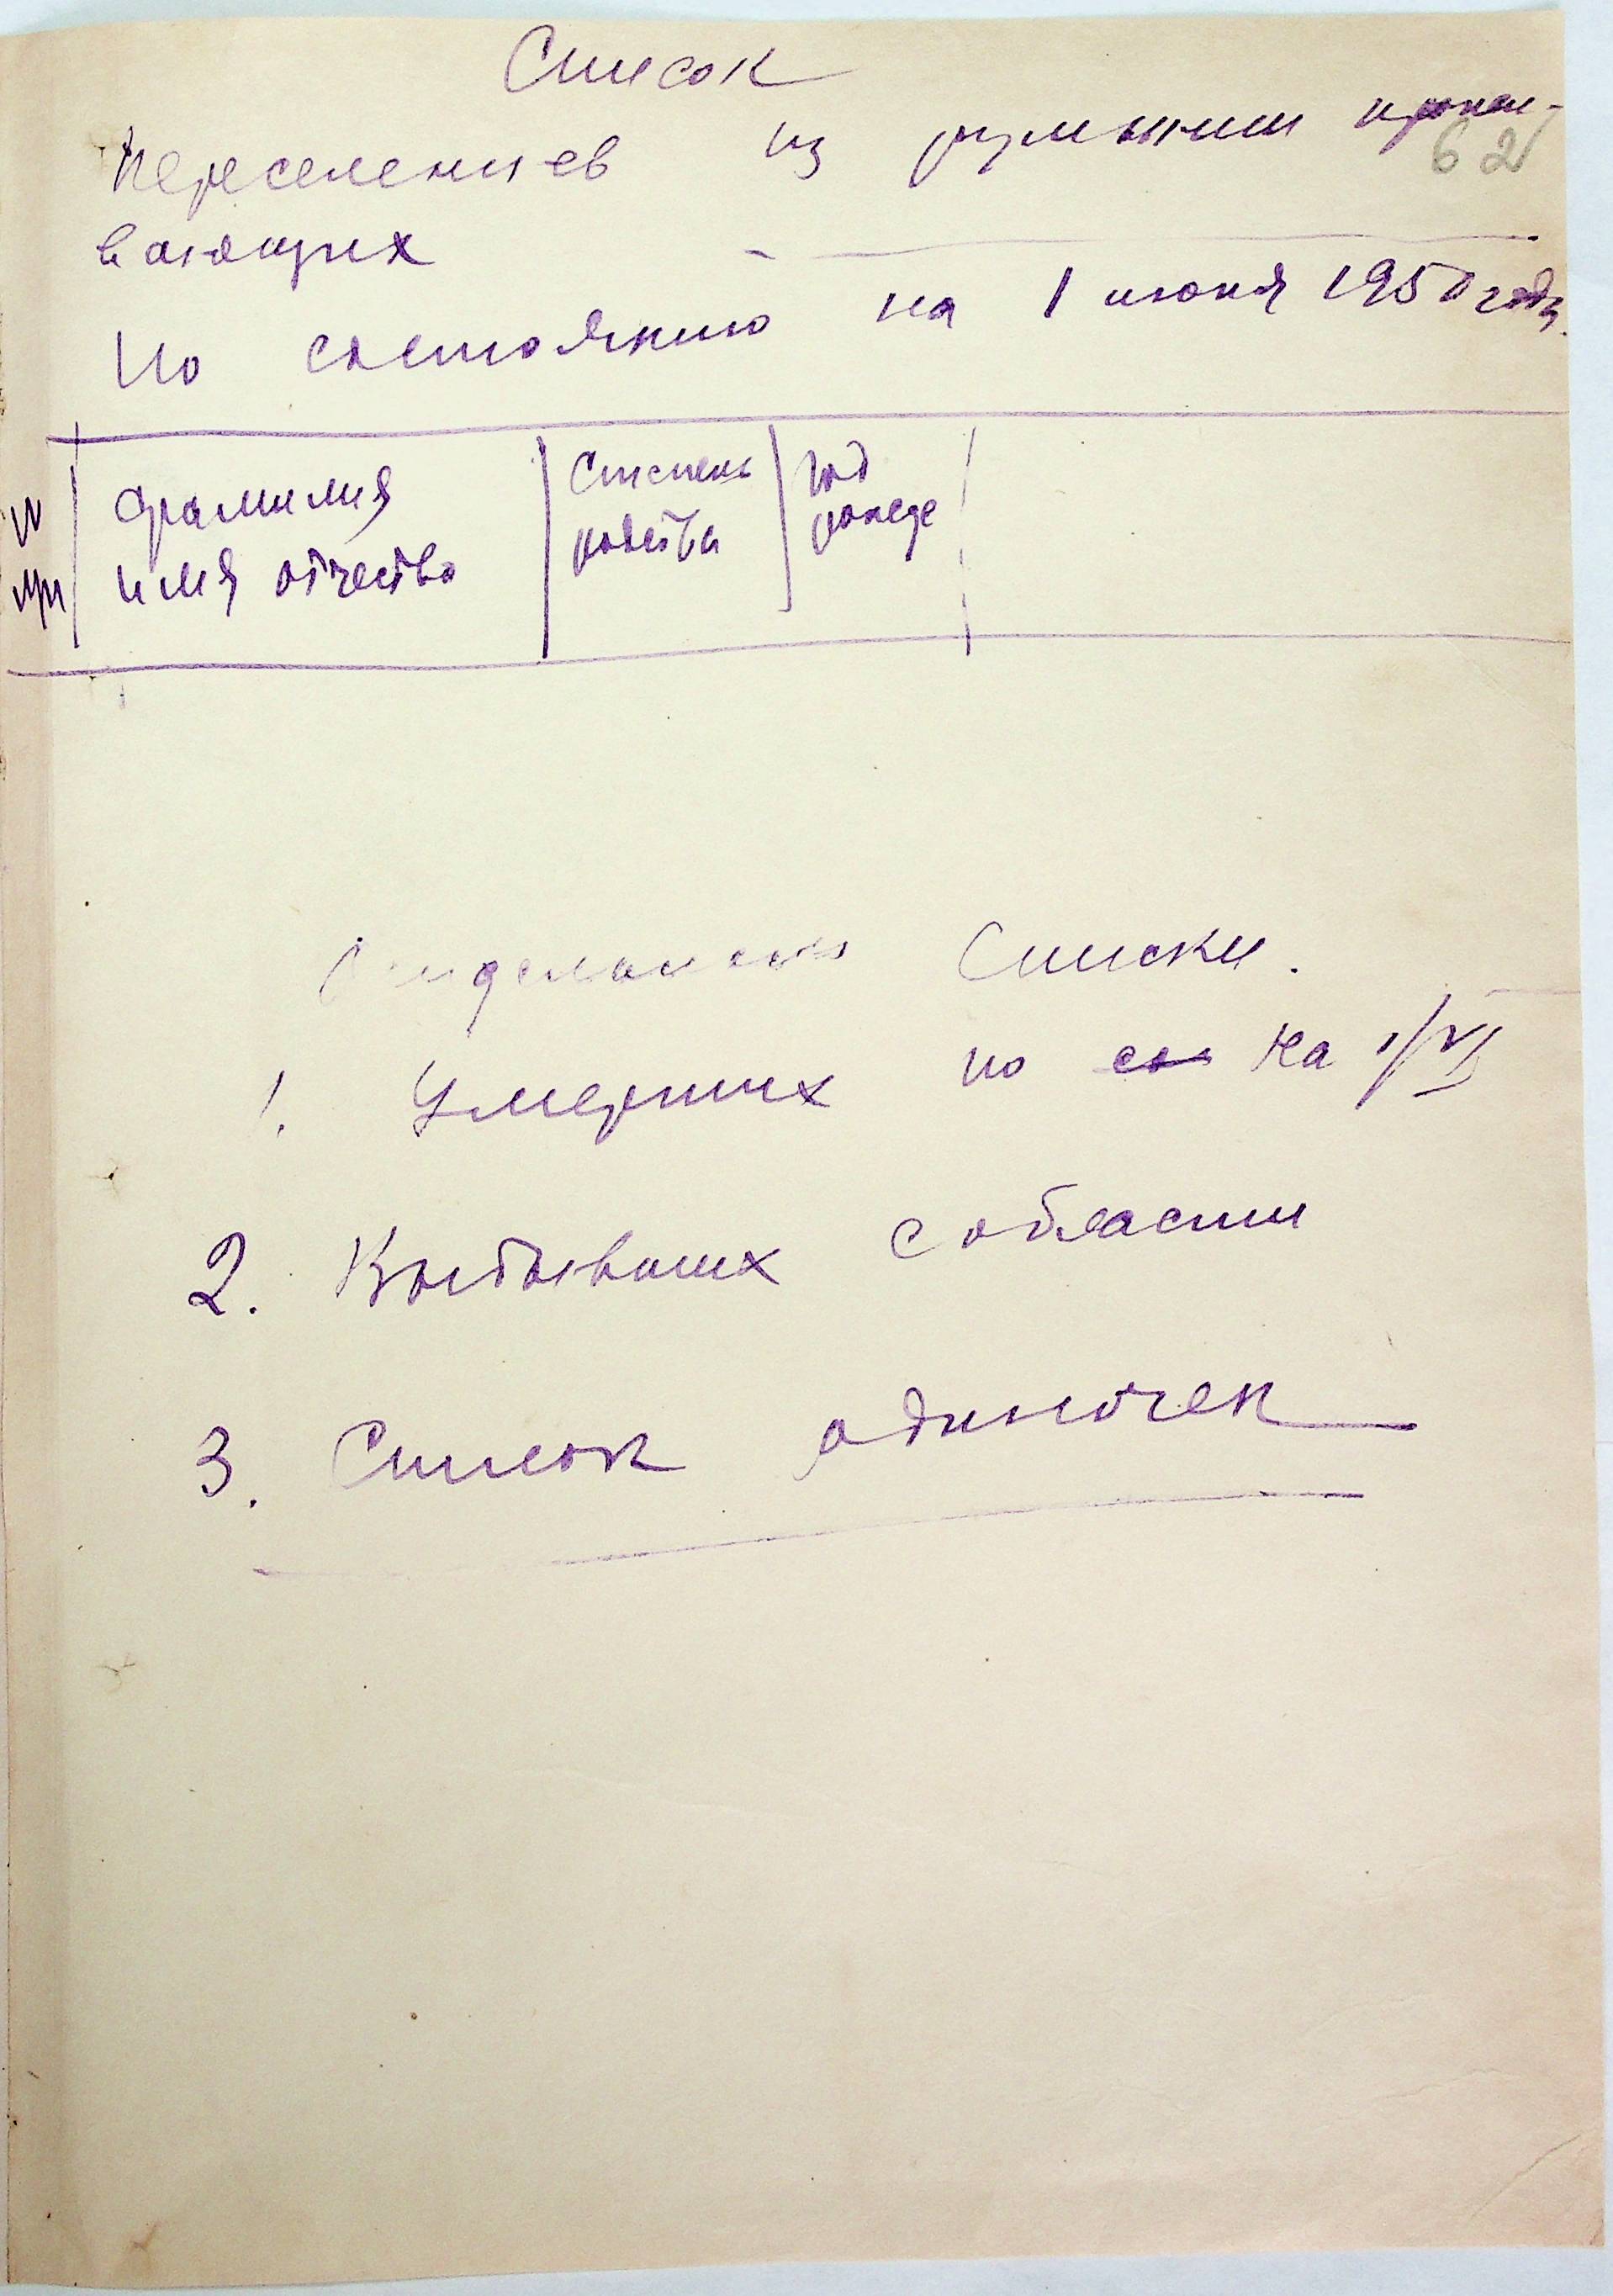 Список
переселенцев из румынии прожи-
62
вающих
По состоянию на 1 июня 1950 года.
N фамилия Степень год
п/п имя отчество родства рожде
Списки.
1. Умерших по со на 1/VI
2. Выбывших с области
3. Список одиночек